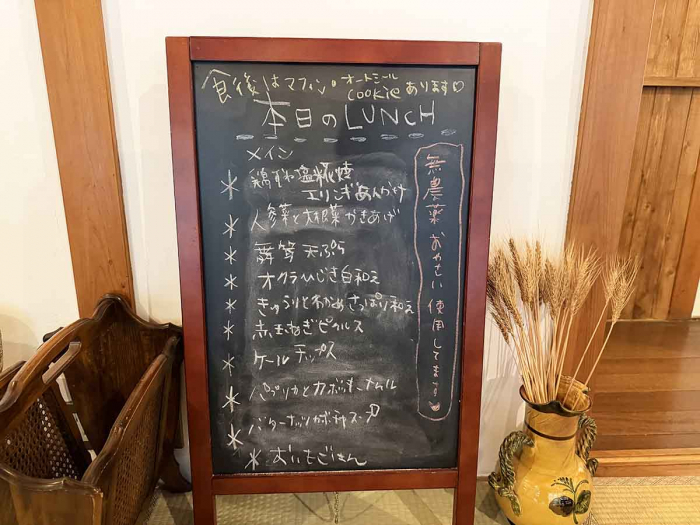 食後はマフィン。オートミール
cookieあります♡
本日のLUNCH
メイン
* 鶏むね塩糀焼
エリンギあんかけ
* 人参菜と大根葉かきあげ
* 蓮筍天ぷら
* オクラひじき白和え
* きゅうりとわかめさっぱり和え
* 赤玉ねぎピクルス
* ケールチップス
* パプリカとカボッキーナムル
* バターナッツカボチャスープ
* おいもごはん
無農薬おやさい使用してます